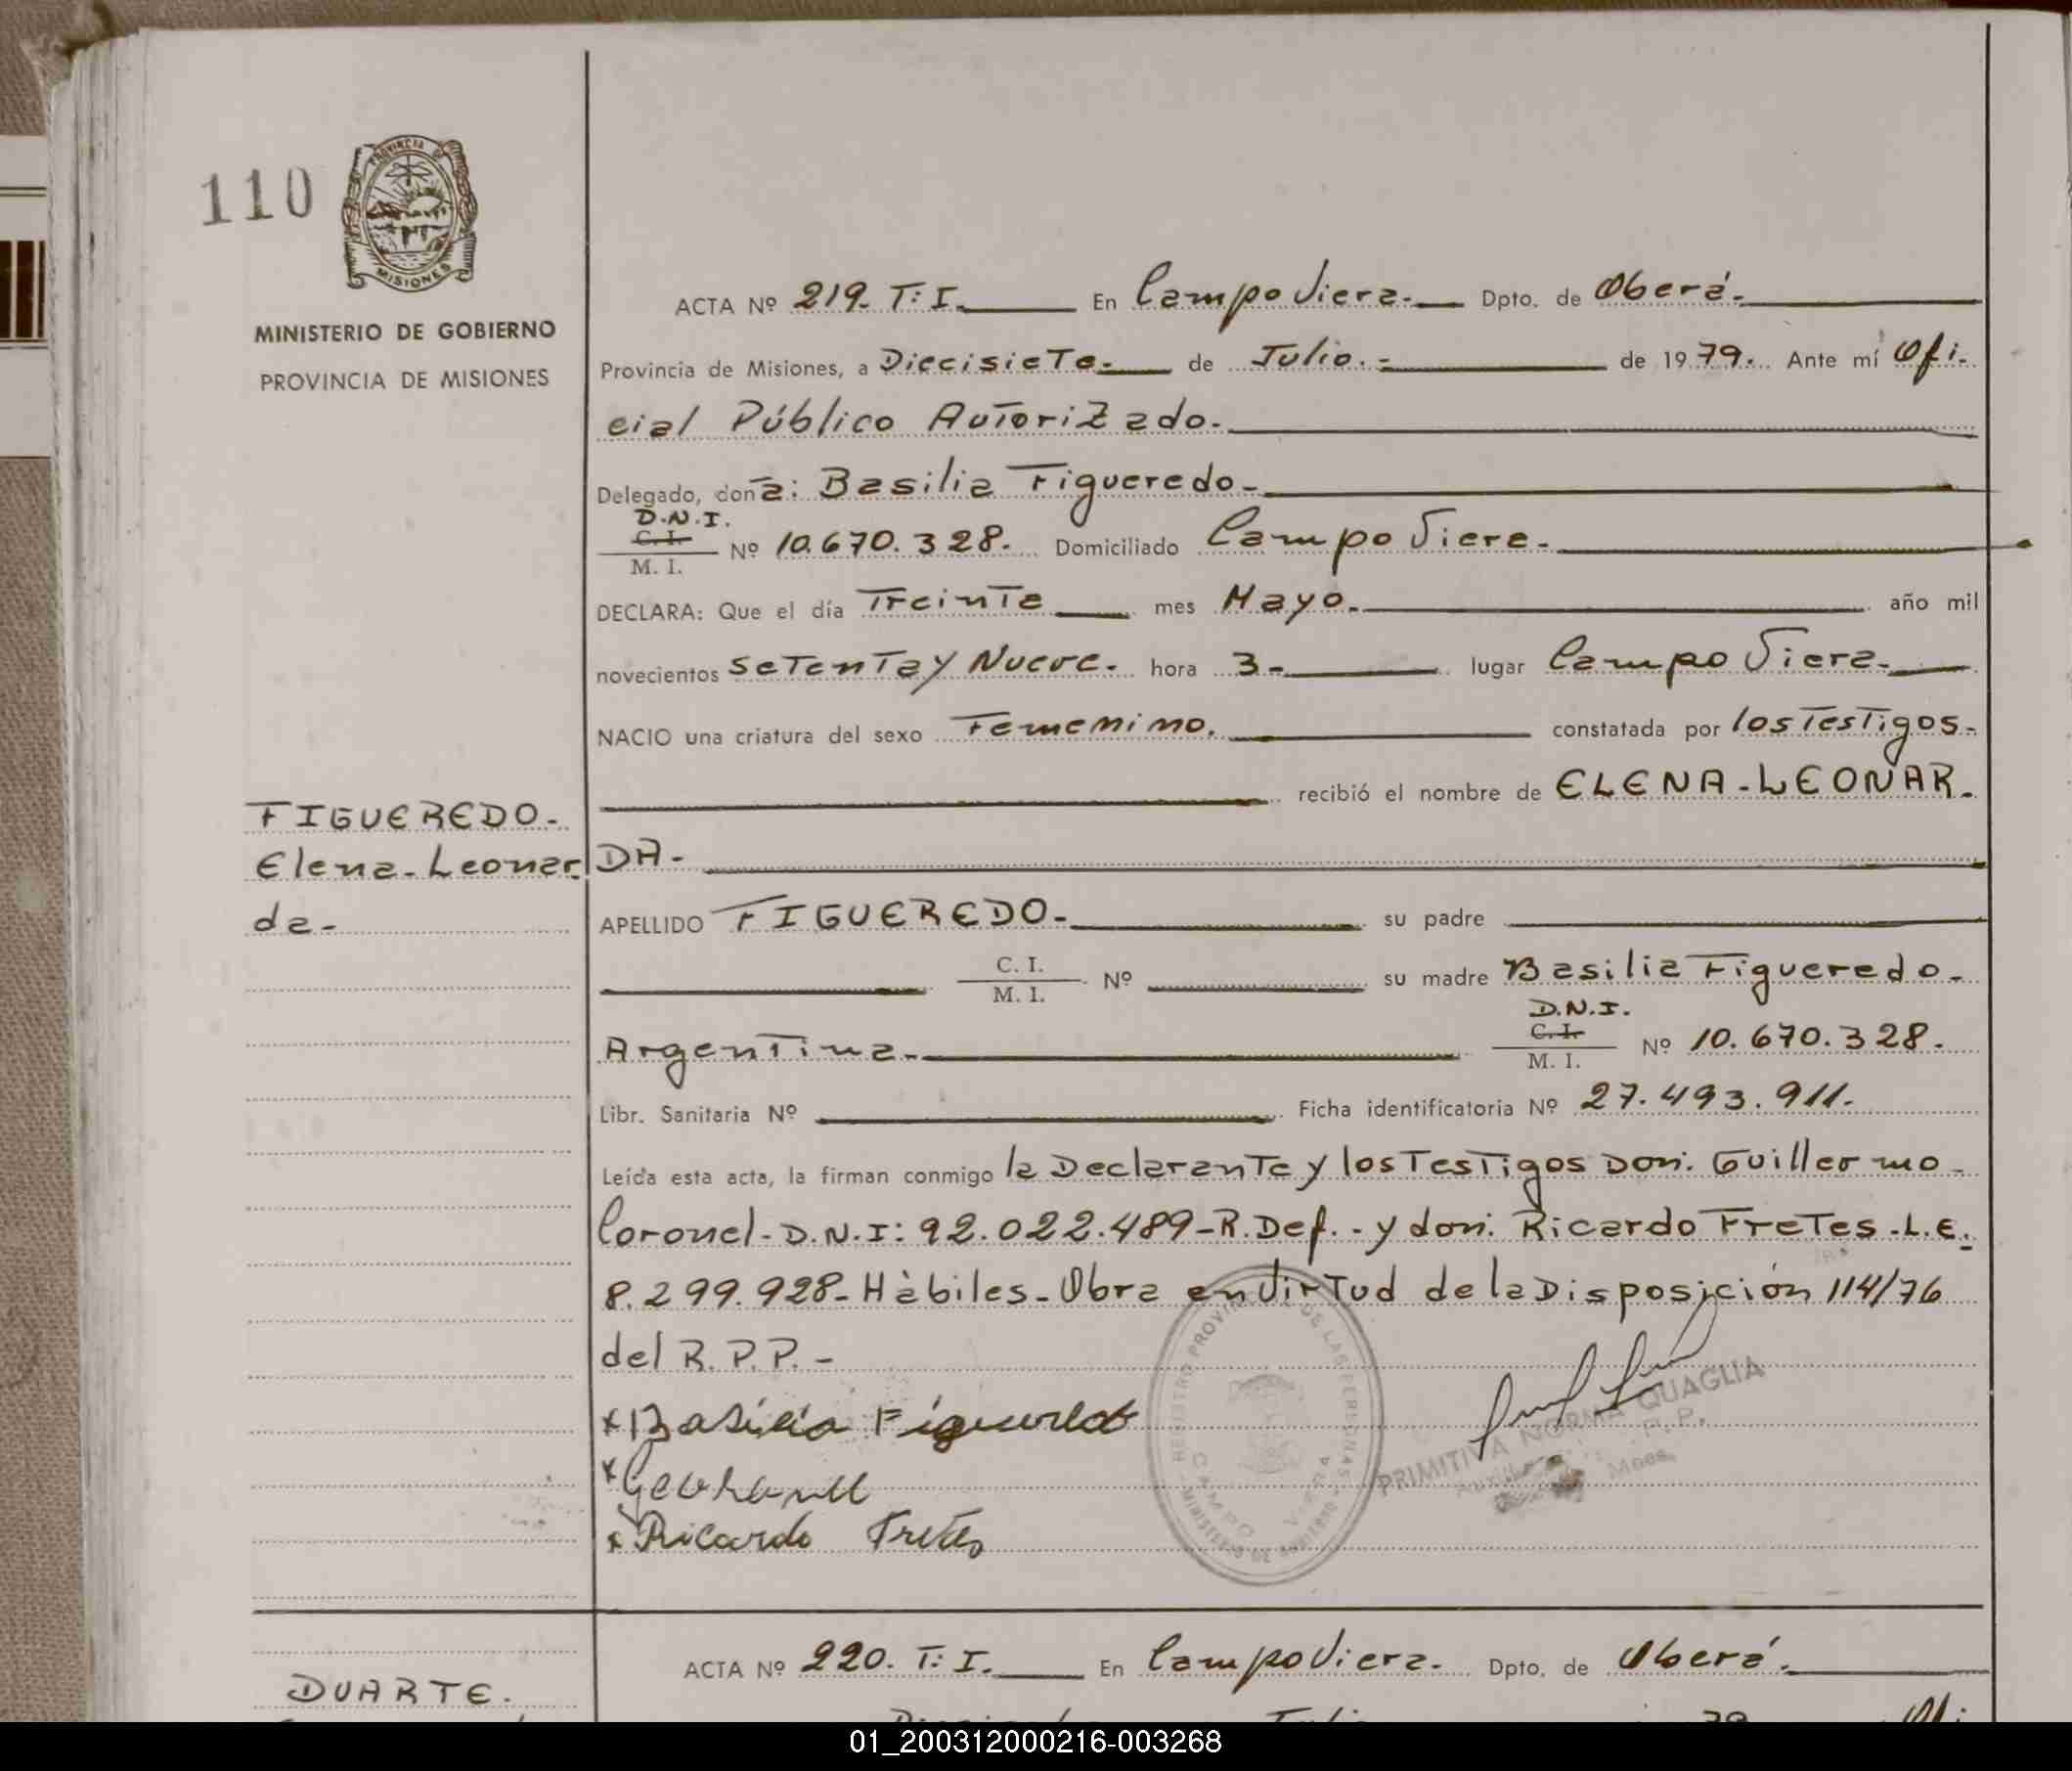 110
PROVINCIA DE
MISIONES
MINISTERIO DE GOBIERNO
PROVINCIA DE MISIONES
ACTA Nº 219. T: I. En Campo Viera. Dpto. de Oberá.
Provincia de Misiones, a Diecisiete. de Julio. de 1979. Ante mí Ofi-
cial Público Autorizado.
Delegado, doña: Basilia Figueredo
D.N.I.
C.I. Nº 10.670.328. Domiciliado Campo Viera.
M. I.
DECLARA: Que el día Treinta mes Mayo. año mil
novecientos Setenta y Nueve. hora 3- lugar Campo Viera.
NACIO una criatura del sexo Femenino. constatada por los Testigos.
recibió el nombre de ELENA-LEONAR-
FIGUEREDO-
Elena-Leonar DA-
da-
APELLIDO FIGUEREDO- su padre
C. I.
M. I. Nº su madre Basilia Figueredo-
D.N.I.
Argentina. C.I. Nº 10.670.328.
M. I.
Libr. Sanitaria Nº Ficha identificatoria Nº 27.493.911.
Leída esta acta, la firman conmigo la Declarante y los Testigos Don: Guillermo
Coronel- D.N.I: 92.022.489-R.Def.-y don: Ricardo Fretes.L.E.
8.299.928-Hàbiles-Obra en virtud de la Disposición 114/76
del R.P.P.-
x Basilia Figueredo
x
x Ricardo Fretes
REGISTRO PROVINCIAL DE LAS PERSONAS
MINISTERIO DE GOBIERNO
CAMPO VIERA
PRIMITIVA NORMA QUAGLIA
R.P.P.
Mnes.
ACTA Nº 220. T: I. En Campo Viera. Dpto. de Oberá.
DUARTE.
01_200312000216-003268